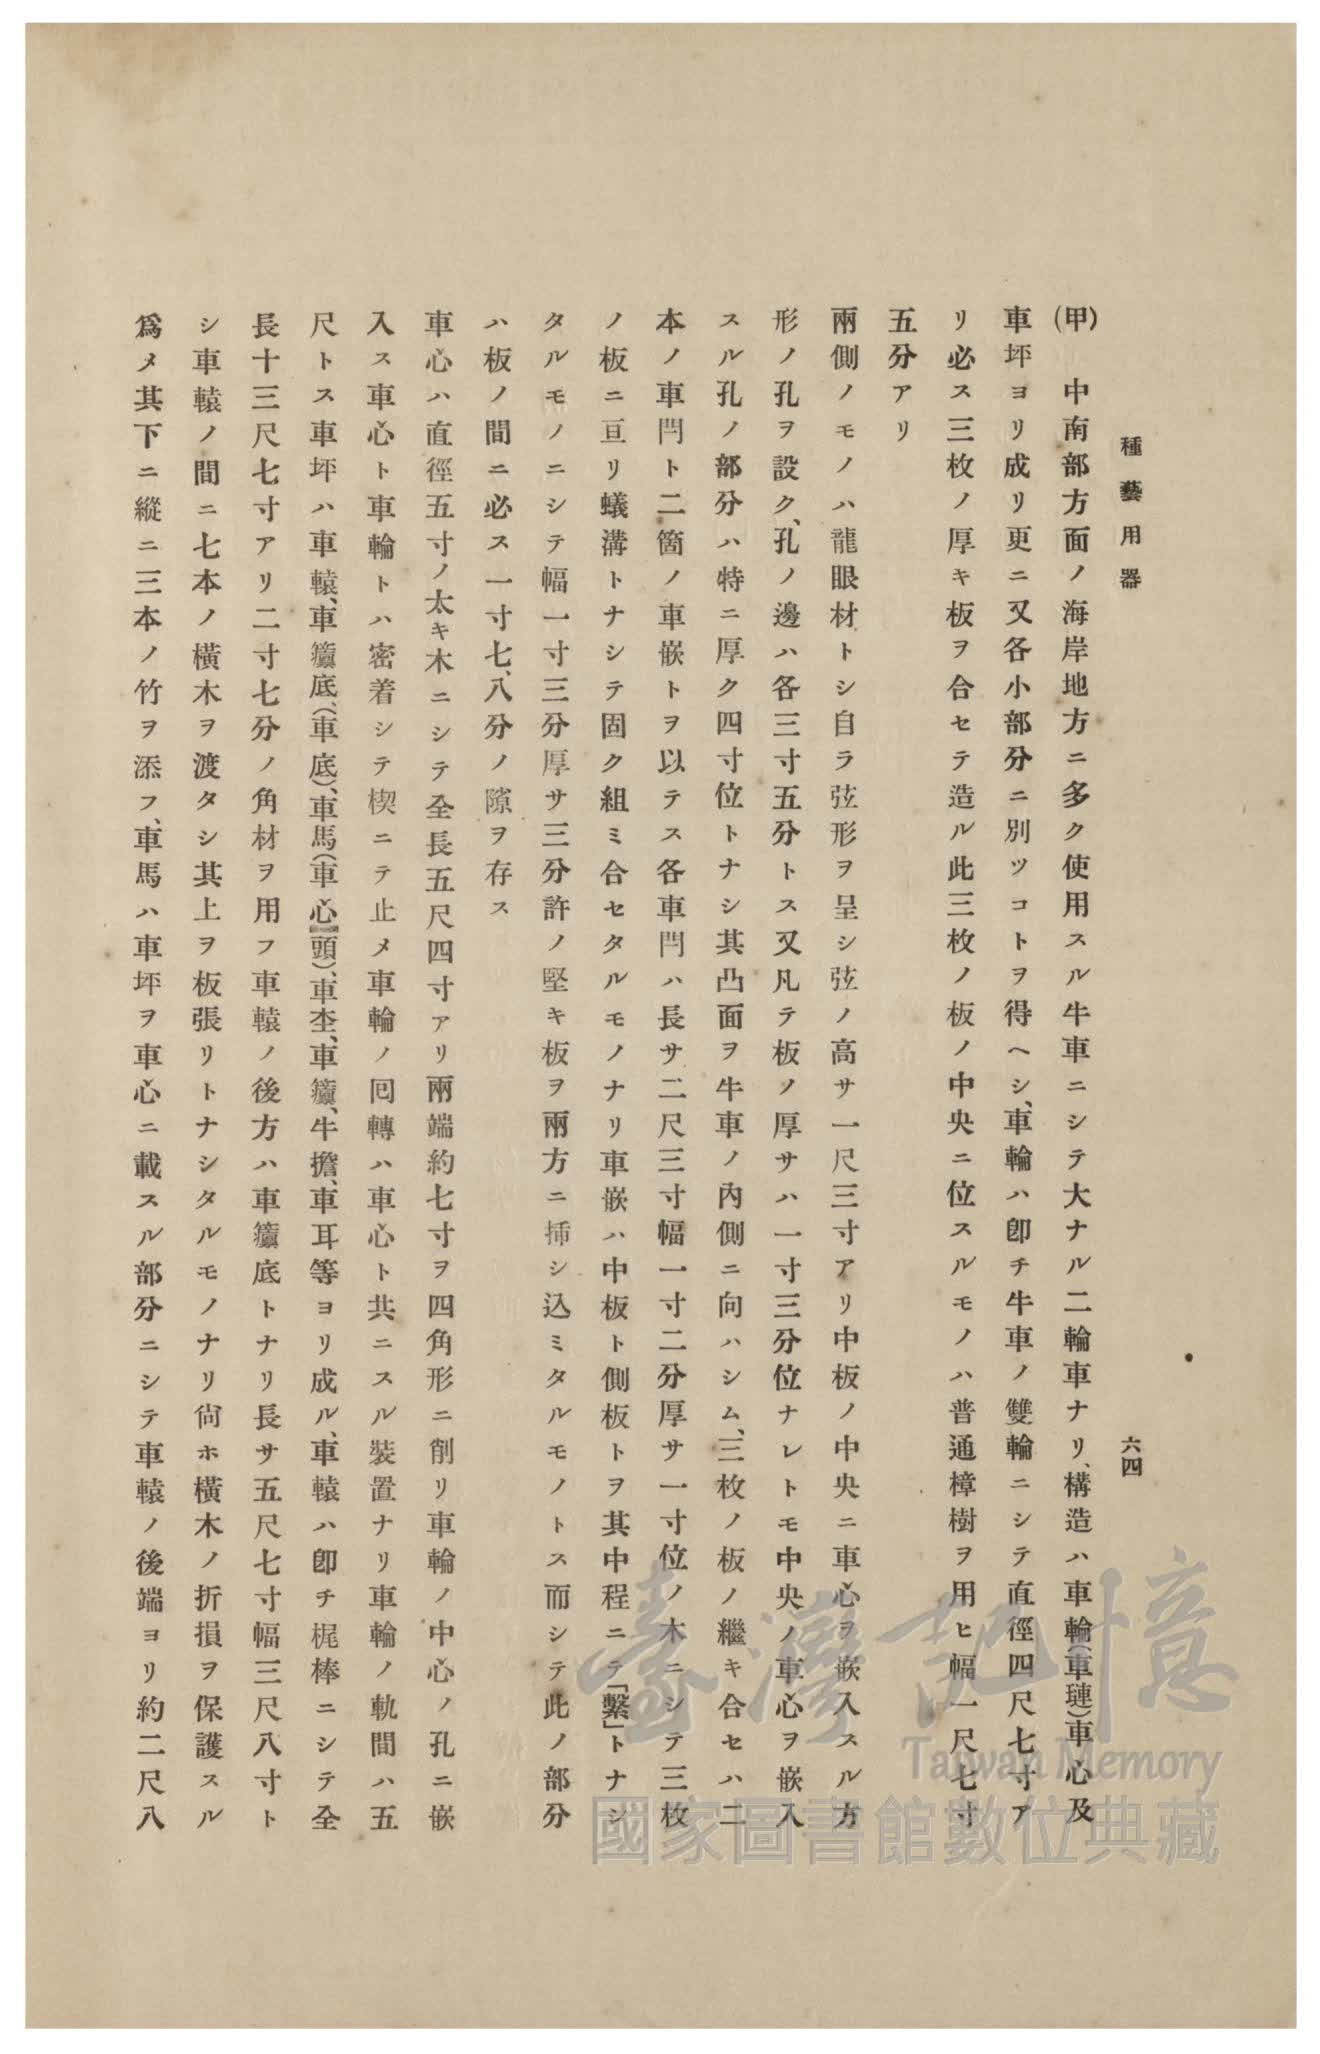 種藝用器
六四
(甲)　中南部方面ノ海岸地方ニ多ク使用スル牛車ニシテ大ナル二輪車ナリ、構造ハ車輪(車璉)車心及
車坪ヨリ成リ更ニ又各小部分ニ別ツコトヲ得ヘシ、車輪ハ卽チ牛車ノ雙輪ニシテ直徑四尺七寸ア
リ必ス三枚ノ厚キ板ヲ合セテ造ル此三枚ノ板ノ中央ニ位スルモノハ普通樟樹ヲ用ヒ幅一尺七寸
五分アリ
兩側ノモノハ龍眼材トシ自ラ弦形ヲ呈シ弦ノ高サ一尺三寸アリ中板ノ中央ニ車心ヲ嵌入スル方
形ノ孔ヲ設ク、孔ノ邊ハ各三寸五分トス又凡テ板ノ厚サハ一寸三分位ナレトモ中央ノ車心ヲ嵌入
スル孔ノ部分ハ特ニ厚ク四寸位トナシ其凸面ヲ牛車ノ內側ニ向ハシム、三枚ノ板ノ繼キ合セハ二
本ノ車閂ト二箇ノ車嵌トヲ以テス各車閂ハ長サ二尺三寸幅一寸二分厚サ一寸位ノ木ニシテ三枚
ノ板ニ亘リ蟻溝トナシテ固ク組ミ合セタルモノナリ車嵌ハ中板ト側板トヲ其中程ニテ「繫」トナシ
タルモノニシテ幅一寸三分厚サ三分許ノ堅キ板ヲ兩方ニ揷シ込ミタルモノトス而シテ此ノ部分
ハ板ノ間ニ必ス一寸七、八分ノ隙ヲ存ス
車心ハ直徑五寸ノ太キ木ニシテ全長五尺四寸アリ兩端約七寸ヲ四角形ニ削リ車輪ノ中心ノ孔ニ嵌
入ス車心ト車輪トハ密着シテ楔ニテ止メ車輪ノ囘轉ハ車心ト共ニスル裝置ナリ車輪ノ軌間ハ五
尺トス車坪ハ車轅、車籚底、(車底)、車馬(車心頭)、車坔、車籚、牛擔、車耳等ヨリ成ル、車轅ハ卽チ梶棒ニシテ全
長十三尺七寸アリ二寸七分ノ角材ヲ用フ車轅ノ後方ハ車籚底トナリ長サ五尺七寸幅三尺八寸ト
シ車轅ノ間ニ七本ノ橫木ヲ渡タシ其上ヲ板張リトナシタルモノナリ尙ホ橫木ノ折損ヲ保護スル
爲メ其下ニ縱ニ三本ノ竹ヲ添フ、車馬ハ車坪ヲ車心ニ載スル部分ニシテ車轅ノ後端ヨリ約二尺八
臺灣記憶
Taiwan Memory
國家圖書館數位典藏